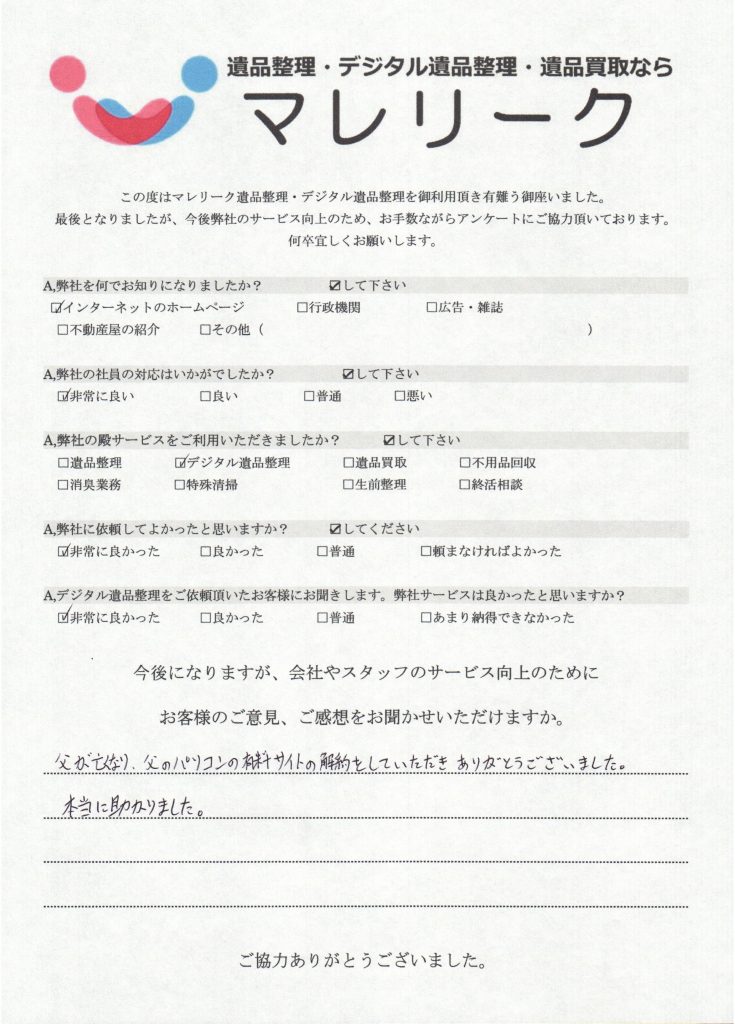 遺品整理・デジタル遺品整理・遺品買取なら
マレリーク
この度はマレリーク遺品整理・デジタル遺品整理を御利用頂き有難う御座いました。
最後となりましたが、今後弊社のサービス向上のため、お手数ながらアンケートにご協力頂いております。
何卒宜しくお願いします。
A,弊社を何でお知りになりましたか？ ☑して下さい
☑インターネットのホームページ □行政機関 □広告・雑誌
□不動産屋の紹介 □その他（ ）
A,弊社の社員の対応はいかがでしたか？ ☑して下さい
☑非常に良い □良い □普通 □悪い
A,弊社の殿サービスをご利用いただきましたか？ ☑して下さい
□遺品整理 ☑デジタル遺品整理 □遺品買取 □不用品回収
□消臭業務 □特殊清掃 □生前整理 □終活相談
A,弊社に依頼してよかったと思いますか？ ☑してください
☑非常に良かった □良かった □普通 □頼まなければよかった
A,デジタル遺品整理をご依頼頂いたお客様にお聞きします。弊社サービスは良かったと思いますか？
☑非常に良かった □良かった □普通 □あまり納得できなかった
今後になりますが、会社やスタッフのサービス向上のために
お客様のご意見、ご感想をお聞かせいただけますか。
父が亡くなり、父のパソコンの有料サイトの解約をしていただきありがとうございました。
本当に助かりました。
ご協力ありがとうございました。